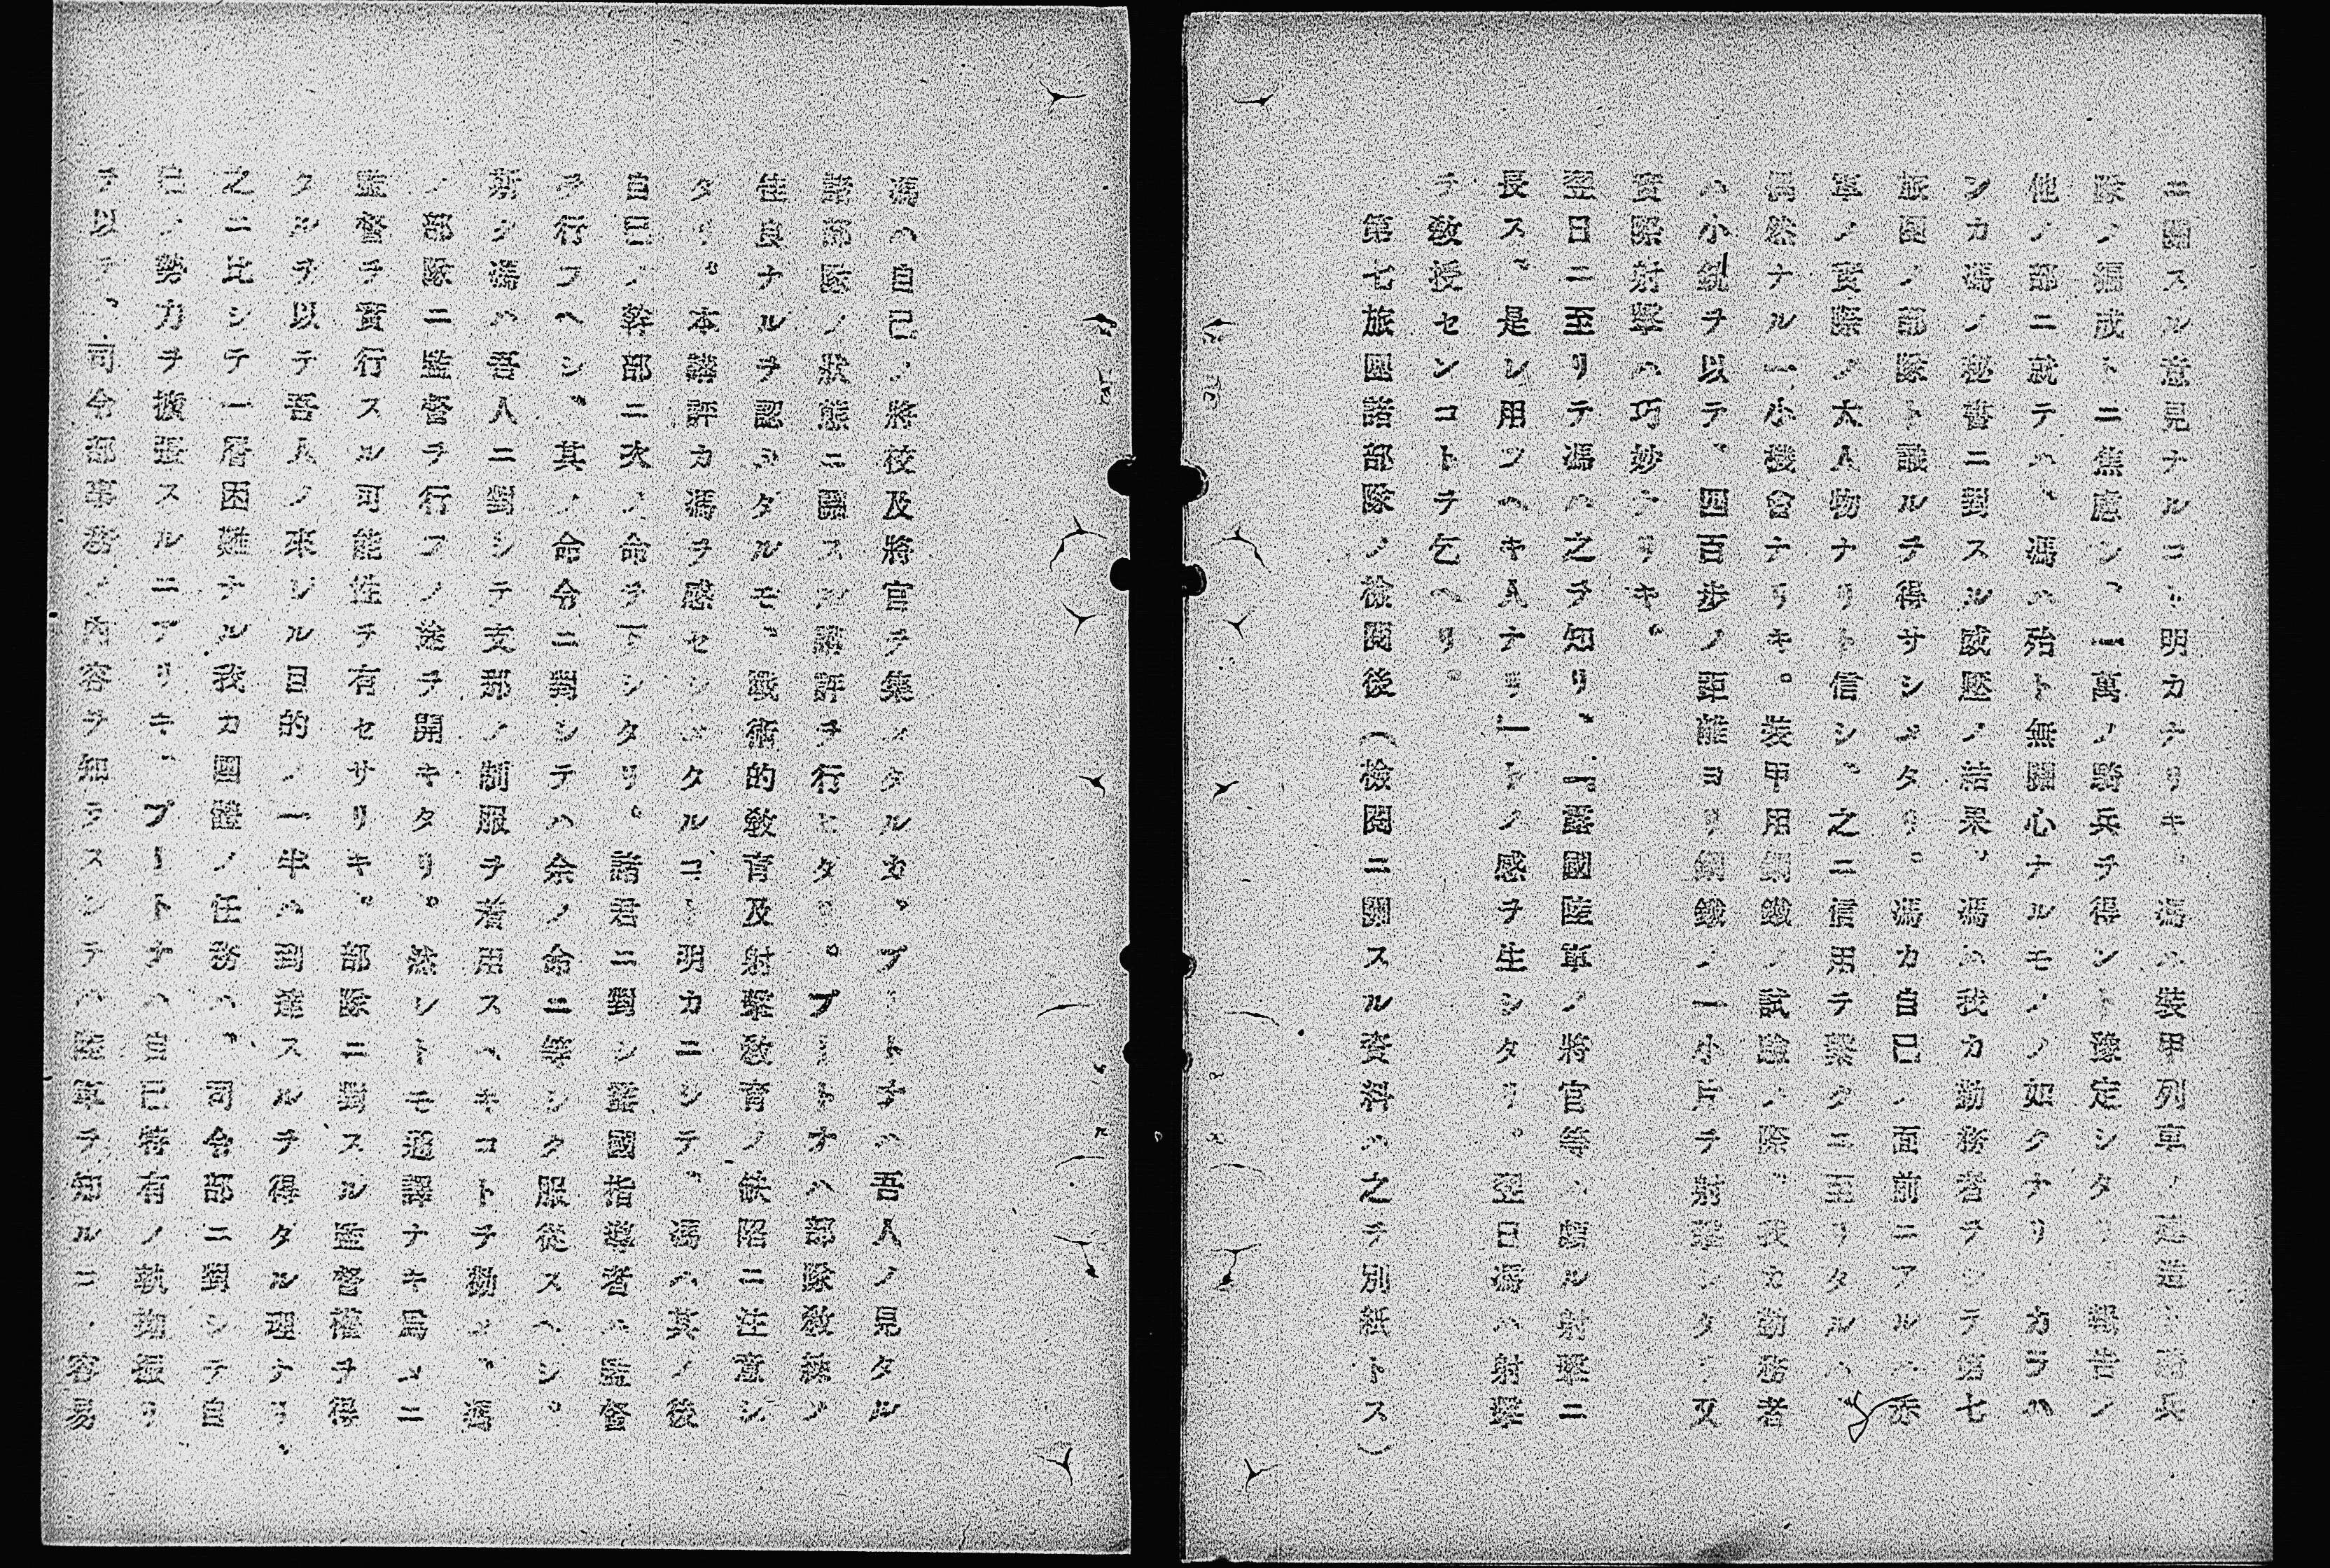 ニ關スル意見ナルコト明カナリキ。馮ハ裝甲列車ノ建造ト騎兵
隊ノ編成トニ焦慮シ、一萬ノ騎兵ヲ得ント豫定シタリ。報告ノ
他ノ部ニ就テハ、馮ハ殆ト無關心ナルモノノ如クナリ カラハ
ンカ馮ノ秘書ニ對スル威壓ノ結果、馮ハ我カ勤務者ヲシテ第七
旅團ノ部隊ト語ルヲ得サシメタリ。馮カ自己ノ面前ニアルハ赤
軍ノ實際ノ大人物ナリト信シ、之ニ信用ヲ築クニ至リタルハ、
偶然ナル一小機會ナリキ。裝甲用鋼鐵ノ試驗ノ際、我カ勤務者
ハ小銃ヲ以テ、四百歩ノ距離ヨリ鋼鐵ノ一小片ヲ射撃シタリ 又
實際射撃ハ巧妙ナリキ。
翌日ニ至リテ馮ハ之ヲ知リ、「露國陸軍ノ將官等ハ 射撃ニ
長ス、是レ用フヘキ人ナリ」トノ感ヲ生シタリ。翌日馮ハ射撃
ヲ敎授センコトヲ乞ヘリ。
第七旅團諸部隊ノ檢閲後（檢閲ニ關スル資料ハ之ヲ別紙トス）
馮ハ自己ノ將校及將官ヲ集メタルカ。プートナハ吾人ノ見タル
諸部隊ノ狀態ニ關スル講評ヲ行ヒタリ。プートナハ部隊敎練ノ
佳良ナルヲ認メタルモ、戰術的敎育及射撃敎育ノ缺陷ニ注意シ
タリ。本講評カ馮ヲ感セシメタルコト明カニシテ、馮ハ其ノ後
自己ノ幹部ニ次ノ命ヲ下シタリ。諸君ニ對シ露國指導者ハ監督
ヲ行フヘシ、其ノ命令ニ對シテハ余ノ命ニ等シク服從スヘシ。
斯ク馮ハ吾人ニ對シテ支那ノ制服ヲ着用スヘキコトヲ勸メ、馮
ノ部隊ニ監督ヲ行フノ途ヲ開キタリ。然レトモ通譯ナキ爲メニ
監督ヲ實行スル可能性ヲ有セサリキ。部隊ニ對スル監督權ヲ得
タルヲ以テ吾人ノ來レル目的ノ一半ハ到達スルヲ得タル理ナリ、
之ニ比シテ一層困難ナル我カ團體ノ任務ハ、司令部ニ對シテ自
己ノ勢力ヲ擴張スルニアリキ。プートナハ自己特有ノ執拗振リ
ヲ以テ、司令部事務ノ內容ヲ知ラスシテハ陸軍ヲ知ルニ、容易